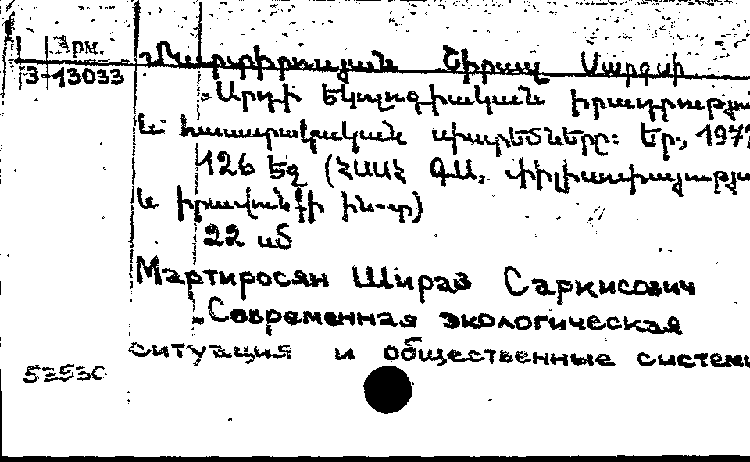 Арм.
3-13033
Մարտիրոսյան Շիրազ Սարգսի
Արդի էկոլոգիական իրադրությա
և հասարակական սիստեմները: Եր., 197
126 էջ (ՀՍՍՀ ԳԱ, փիլիսոփայությա
և իրավունքի ին-տ)
22 սմ
Мартиросян Шираз Саркисович
Современная экологическая
ситуация и общественные систем
53530